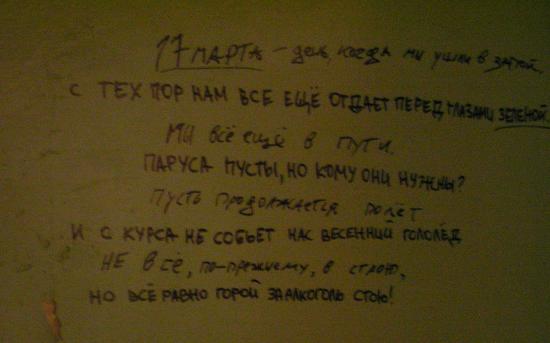 17 МАРТА – день, когда мы ушли в запой.
С ТЕХ ПОР НАМ ВСЕ ЕЩЁ ОТДАЕТ ПЕРЕД ГЛАЗАМИ ЗЕЛЕНОЙ.
МЫ всё ещё в пути.
ПАРУСА ПУСТЫ, НО КОМУ ОНИ НУЖНЫ?
Пусть продолжается полёт
И С КУРСА НЕ СОБЬЕТ НАС ВЕСЕННИЙ ГОЛОЛЁД
НЕ ВСЁ, по-прежнему, в строю,
НО ВСЁ РАВНО ГОРОЙ ЗА АЛКОГОЛЬ СТОЮ!